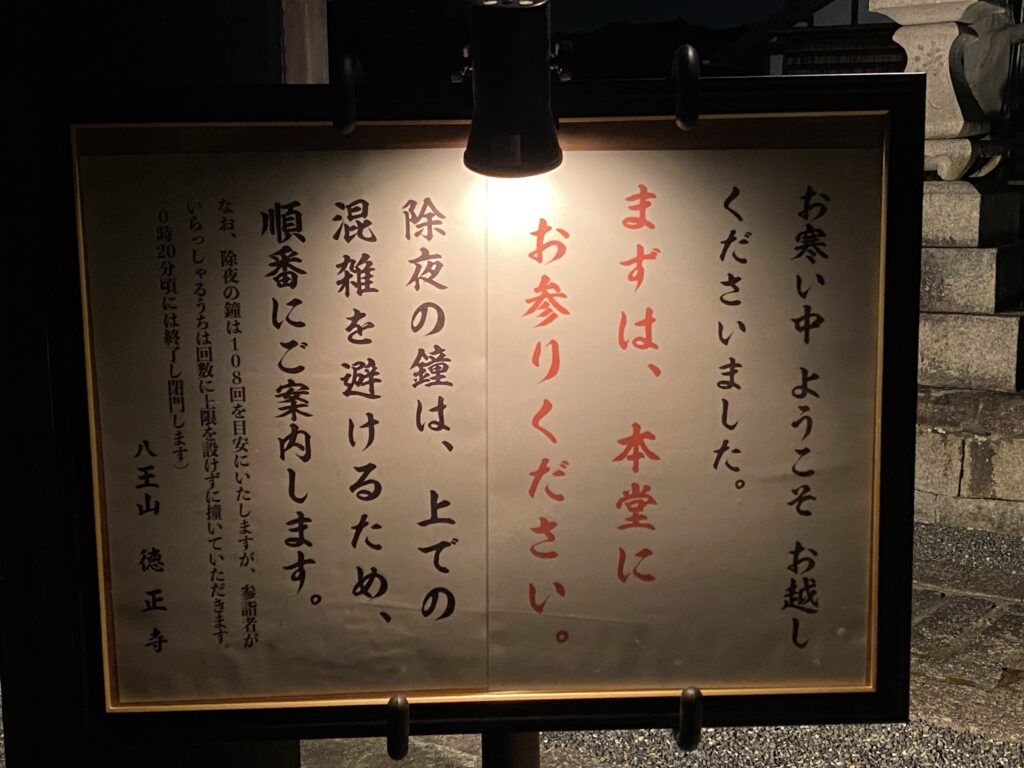 お寒い中 ようこそ お越し
くださいました。
まずは、本堂に
お参りください。
除夜の鐘は、上での
混雑を避けるため、
順番にご案内します。
なお、除夜の鐘は108回を目安にいたしますが、参詣者が
いらっしゃるうちは回数に上限を設けずに撞いていただきます。
(0時20分頃には終了し閉門します)
八王山 徳正寺